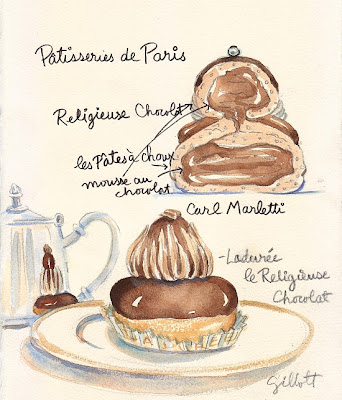 Pâtisseries de Paris
Religieuse Chocolat
les Pâtes à choux
mousse au
chocolat
Carl Marletti
-Ladurée
le Religieuse
Chocolat
Gillott